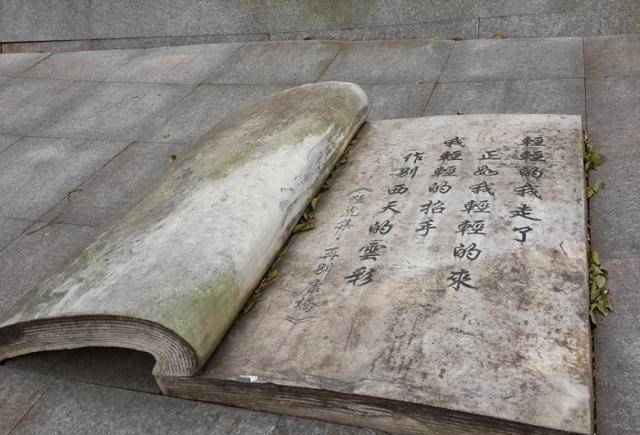 輕輕的我走了
正如我輕輕的來
我輕輕的招手
作別西天的雲彩
《徐志摩·再別康橋》